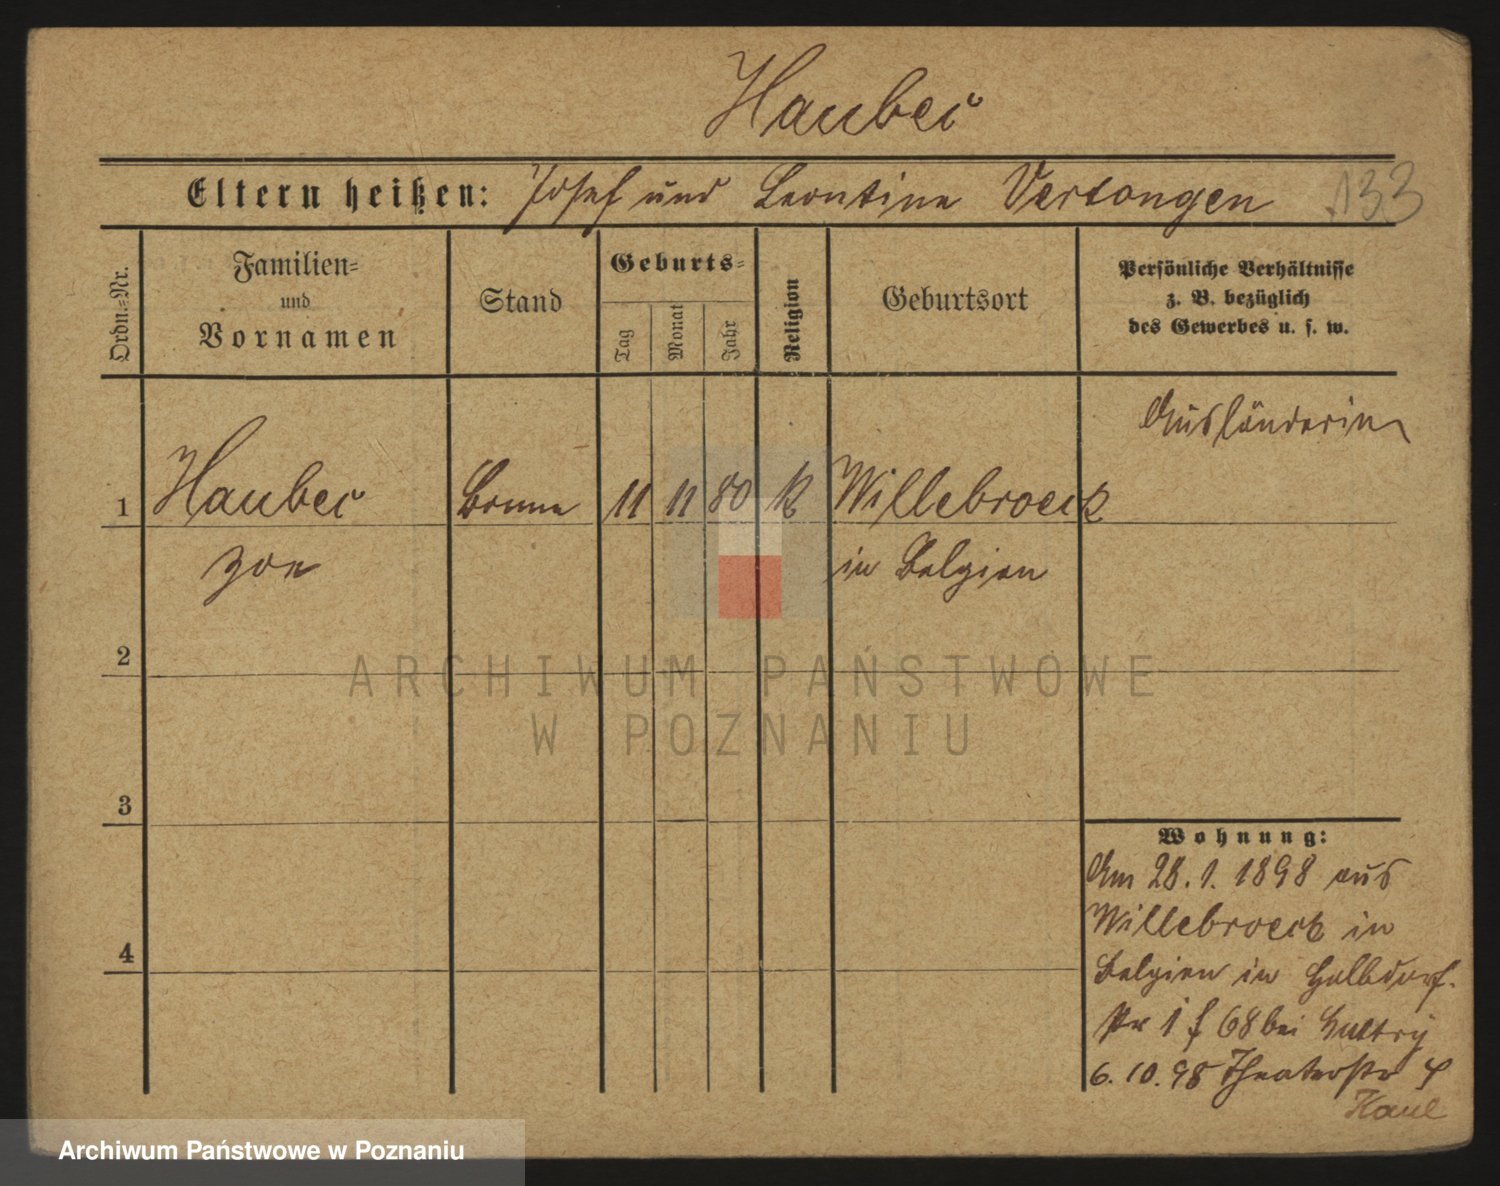 Haubec
Eltern heißen: Josef und Leontine Vertongen 133
Ordn.-Nr.
Familien-
und
Vornamen
Stand
Geburts-
Tag
Monat
Jahr
Religion
Geburtsort
Persönliche Verhältnisse
z. B. bezüglich
des Gewerbes u. s. w.
Ausländerin
1 Haubec Bonne 11 11 80 k Willebroeck
Zoe in Belgien
2
ARCHIWUM PAŃSTWOWE
W POZNANIU
3
Wohnung:
Am 28.1.1898 aus
Willebroeck in
Belgien in Halbdorf-
str 1 f 68 bei
6.10.98 Theaterstr 4
Archiwum Państwowe w Poznaniu